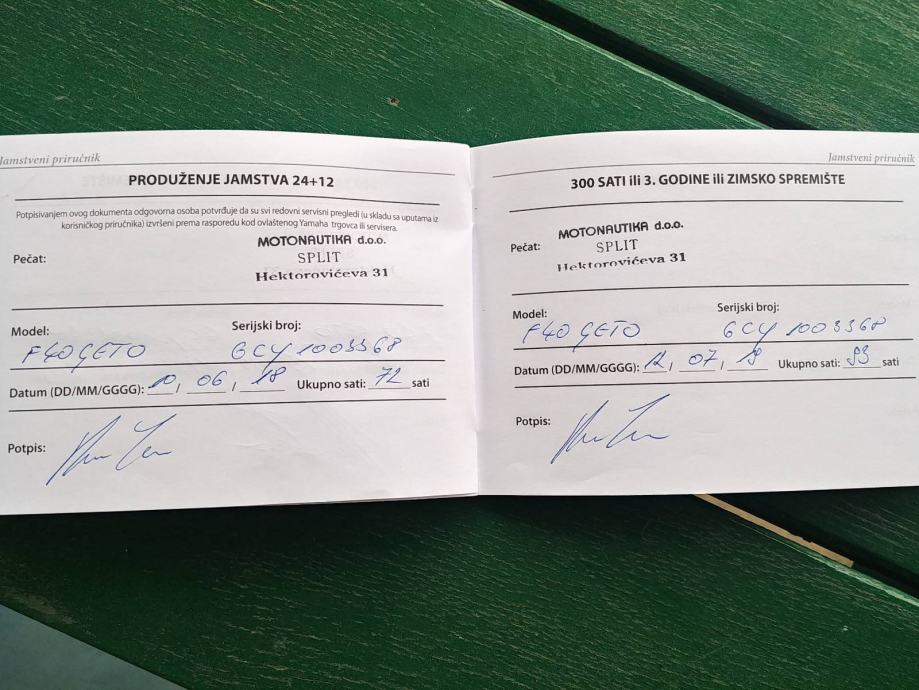 Jamstveni priručnik
PRODUŽENJE JAMSTVA 24+12
Potpisivanjem ovog dokumenta odgovorna osoba potvrđuje da su svi redovni servisni pregledi (u skladu sa uputama iz
korisničkog priručnika) izvršeni prema rasporedu kod ovlaštenog Yamaha trgovca ili servisera.
MOTONAUTIKA d.o.o.
Pečat: SPLIT
Hektorovićeva 31
Model: Serijski broj:
F40 GETO 6CY 1003368
Datum (DD/MM/GGGG): 10 / 06 / 18 Ukupno sati: 72 sati
Potpis:
Jamstveni priručnik
300 SATI ili 3. GODINE ili ZIMSKO SPREMIŠTE
MOTONAUTIKA d.o.o.
Pečat: SPLIT
Hektorovićeva 31
Model: Serijski broj:
F40 GETO 6CY 1003368
Datum (DD/MM/GGGG): / 07 / Ukupno sati: 93 sati
Potpis: